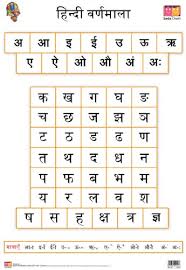 हिन्दी वर्णमाला
अ आ इ ई उ ऊ ऋ
ए ऐ ओ औ अं अः
क ख ग घ ङ
च छ ज झ ञ
ट ठ ड ढ ण
त थ द ध न
प फ ब भ म
य र ल व श
ष स ह क्ष त्र ज्ञ